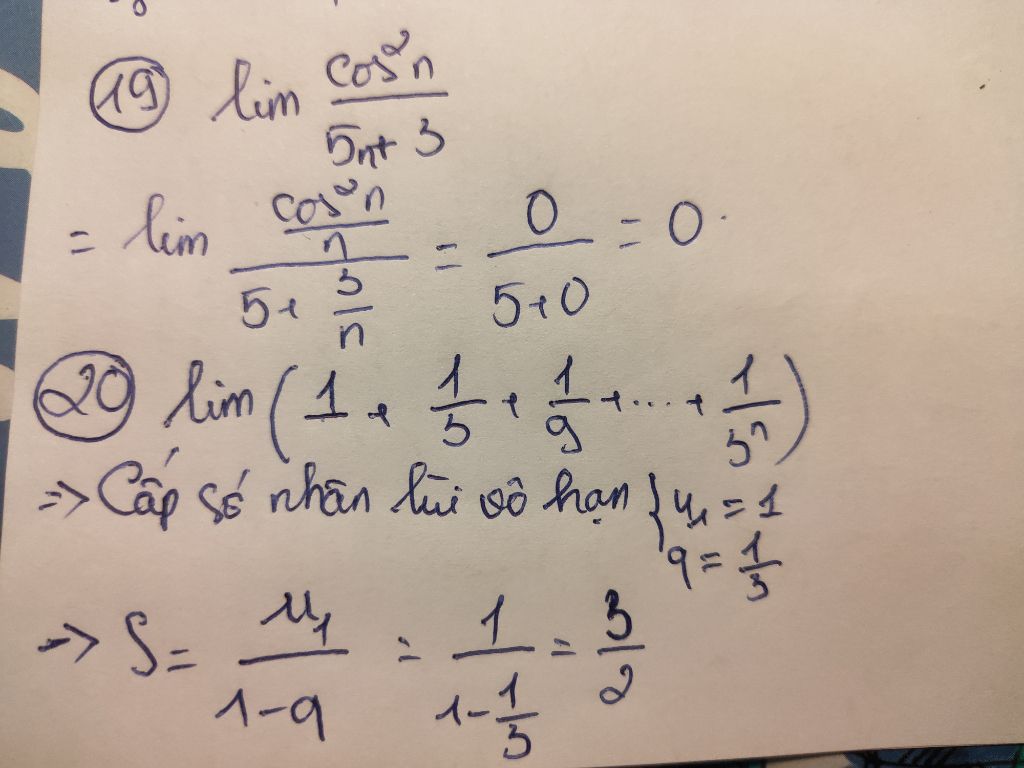 19 lim cos²n / (5n + 3)
= lim (cos²n / n) / (5 + 3/n) = 0 / (5+0) = 0.
20 lim (1 + 1/3 + 1/9 + ... + 1/3ⁿ)
=> Cấp số nhân lùi vô hạn { u₁ = 1
q = 1/3
-> S = u₁ / (1-q) = 1 / (1 - 1/3) = 3/2